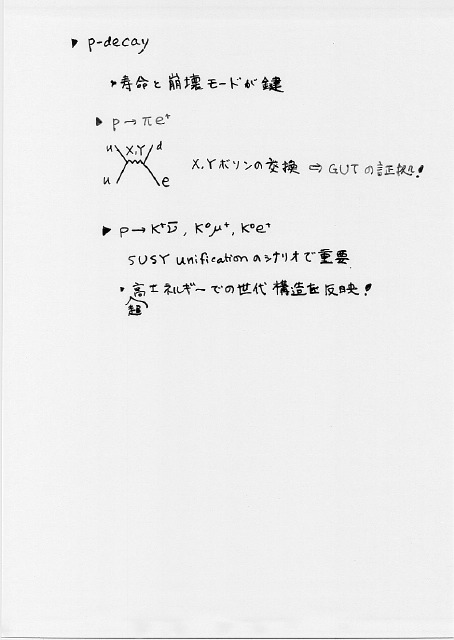 ▶ p-decay
▶寿命と崩壊モードが鍵
▶ p → πe⁺
u X,Y d
u e
X,Yボソンの交換 ⇨ GUTの証拠!
▶ p → K⁺ν̄, K⁰μ⁺, K⁰e⁺
SUSY unificationのシナリオで重要
・高エネルギーでの世代構造を反映!
超